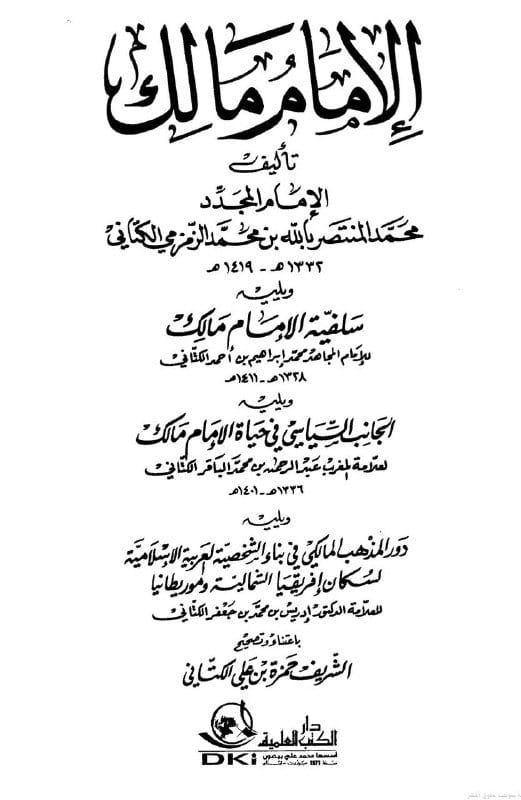 الإمام مالك
تأليف
الإمام المجدد
محمد المنتصر بالله بن محمد الزمزمي الكتاني
١٣٣٢هـ - ١٤١٩هـ
ويليه
سلفية الإمام مالك
للإمام المجاهد محمد إبراهيم بن أحمد الكتاني
١٣٢٨هـ - ١٤١١هـ
ويليه
الجانب السياسي في حياة الإمام مالك
لعلامة المغرب عبد الرحمن بن محمد الباقر الكتاني
١٣٣٦هـ - ١٤٠١هـ
ويليه
دور المذهب المالكي في بناء الشخصية العربية الإسلامية
لسكان إفريقيا الشمالية وموريطانيا
للعلامة الدكتور إدريس بن محمد بن جعفر الكتاني
باعتناء وتصحيح
الشريف حمزة بن علي الكتاني
دار
الكتب العلمية
DKi
أسسها محمد علي بيضون
سنة 1971 بيروت - لبنان